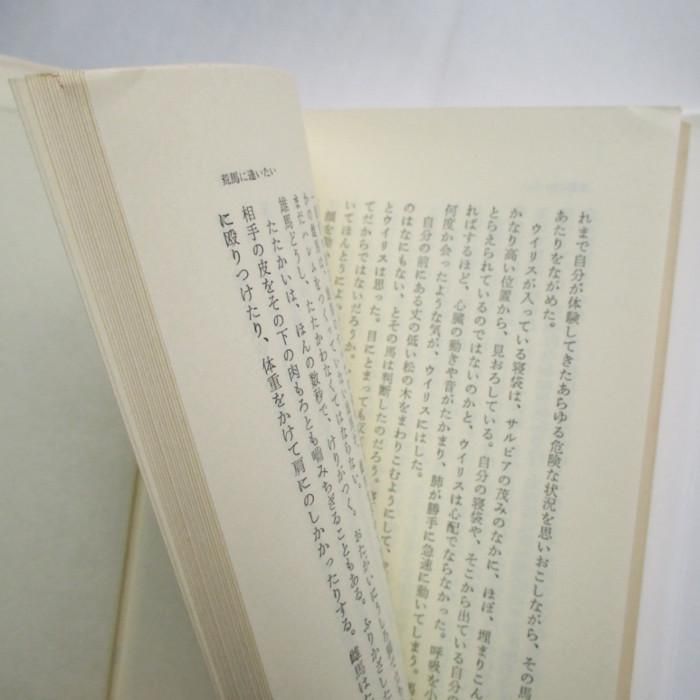 れまで自分が体験してきたあらゆる危険な状況を思いおこしながら、その馬
あたりをながめた。
ウイリスが入っている寝袋は、サルビアの茂みのなかに、ほぼ、埋まりこん
かなり高い位置から、見おろしている。自分の寝袋や、そこから出ている自分
とらえられているのではないのかと、ウイリスは心配でならなかった。呼吸を小
ればするほど、心臓の動きや音がたかまり、肺が勝手に急速に動いてしまう。
何度か会ったような気が、ウイリスにはした。
自分の前にある丈の低い松の木をまわりこむようにして、
のはなにもない、とその馬は判断したのだろう。
とウイリスは思った。目にとまっても
てだからではないだろうか。
いてほんとうによ
顔を動か
荒馬に逢いたい
まだハレムをつく
雄馬どうし、たたかわなくてはならない。
たたかいは、ほんの数秒で、けりがつく。おたがいにうしろ
相手の皮をその下の肉もろとも嚙みちぎることもある。ふりかざした
に殴りつけたり、体重をかけて肩にのしかかったりする。雌馬は